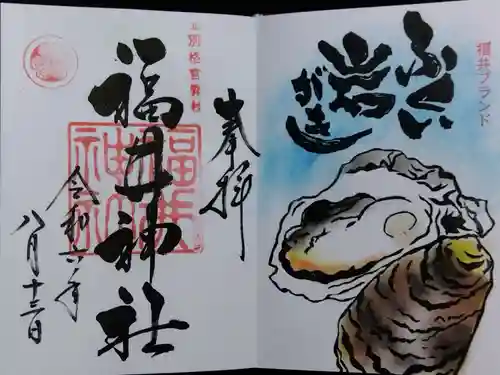 福井ブランド
ふくい
岩
がき
奉拝
別格官幣社
福井神社
令和 年
八月十三日